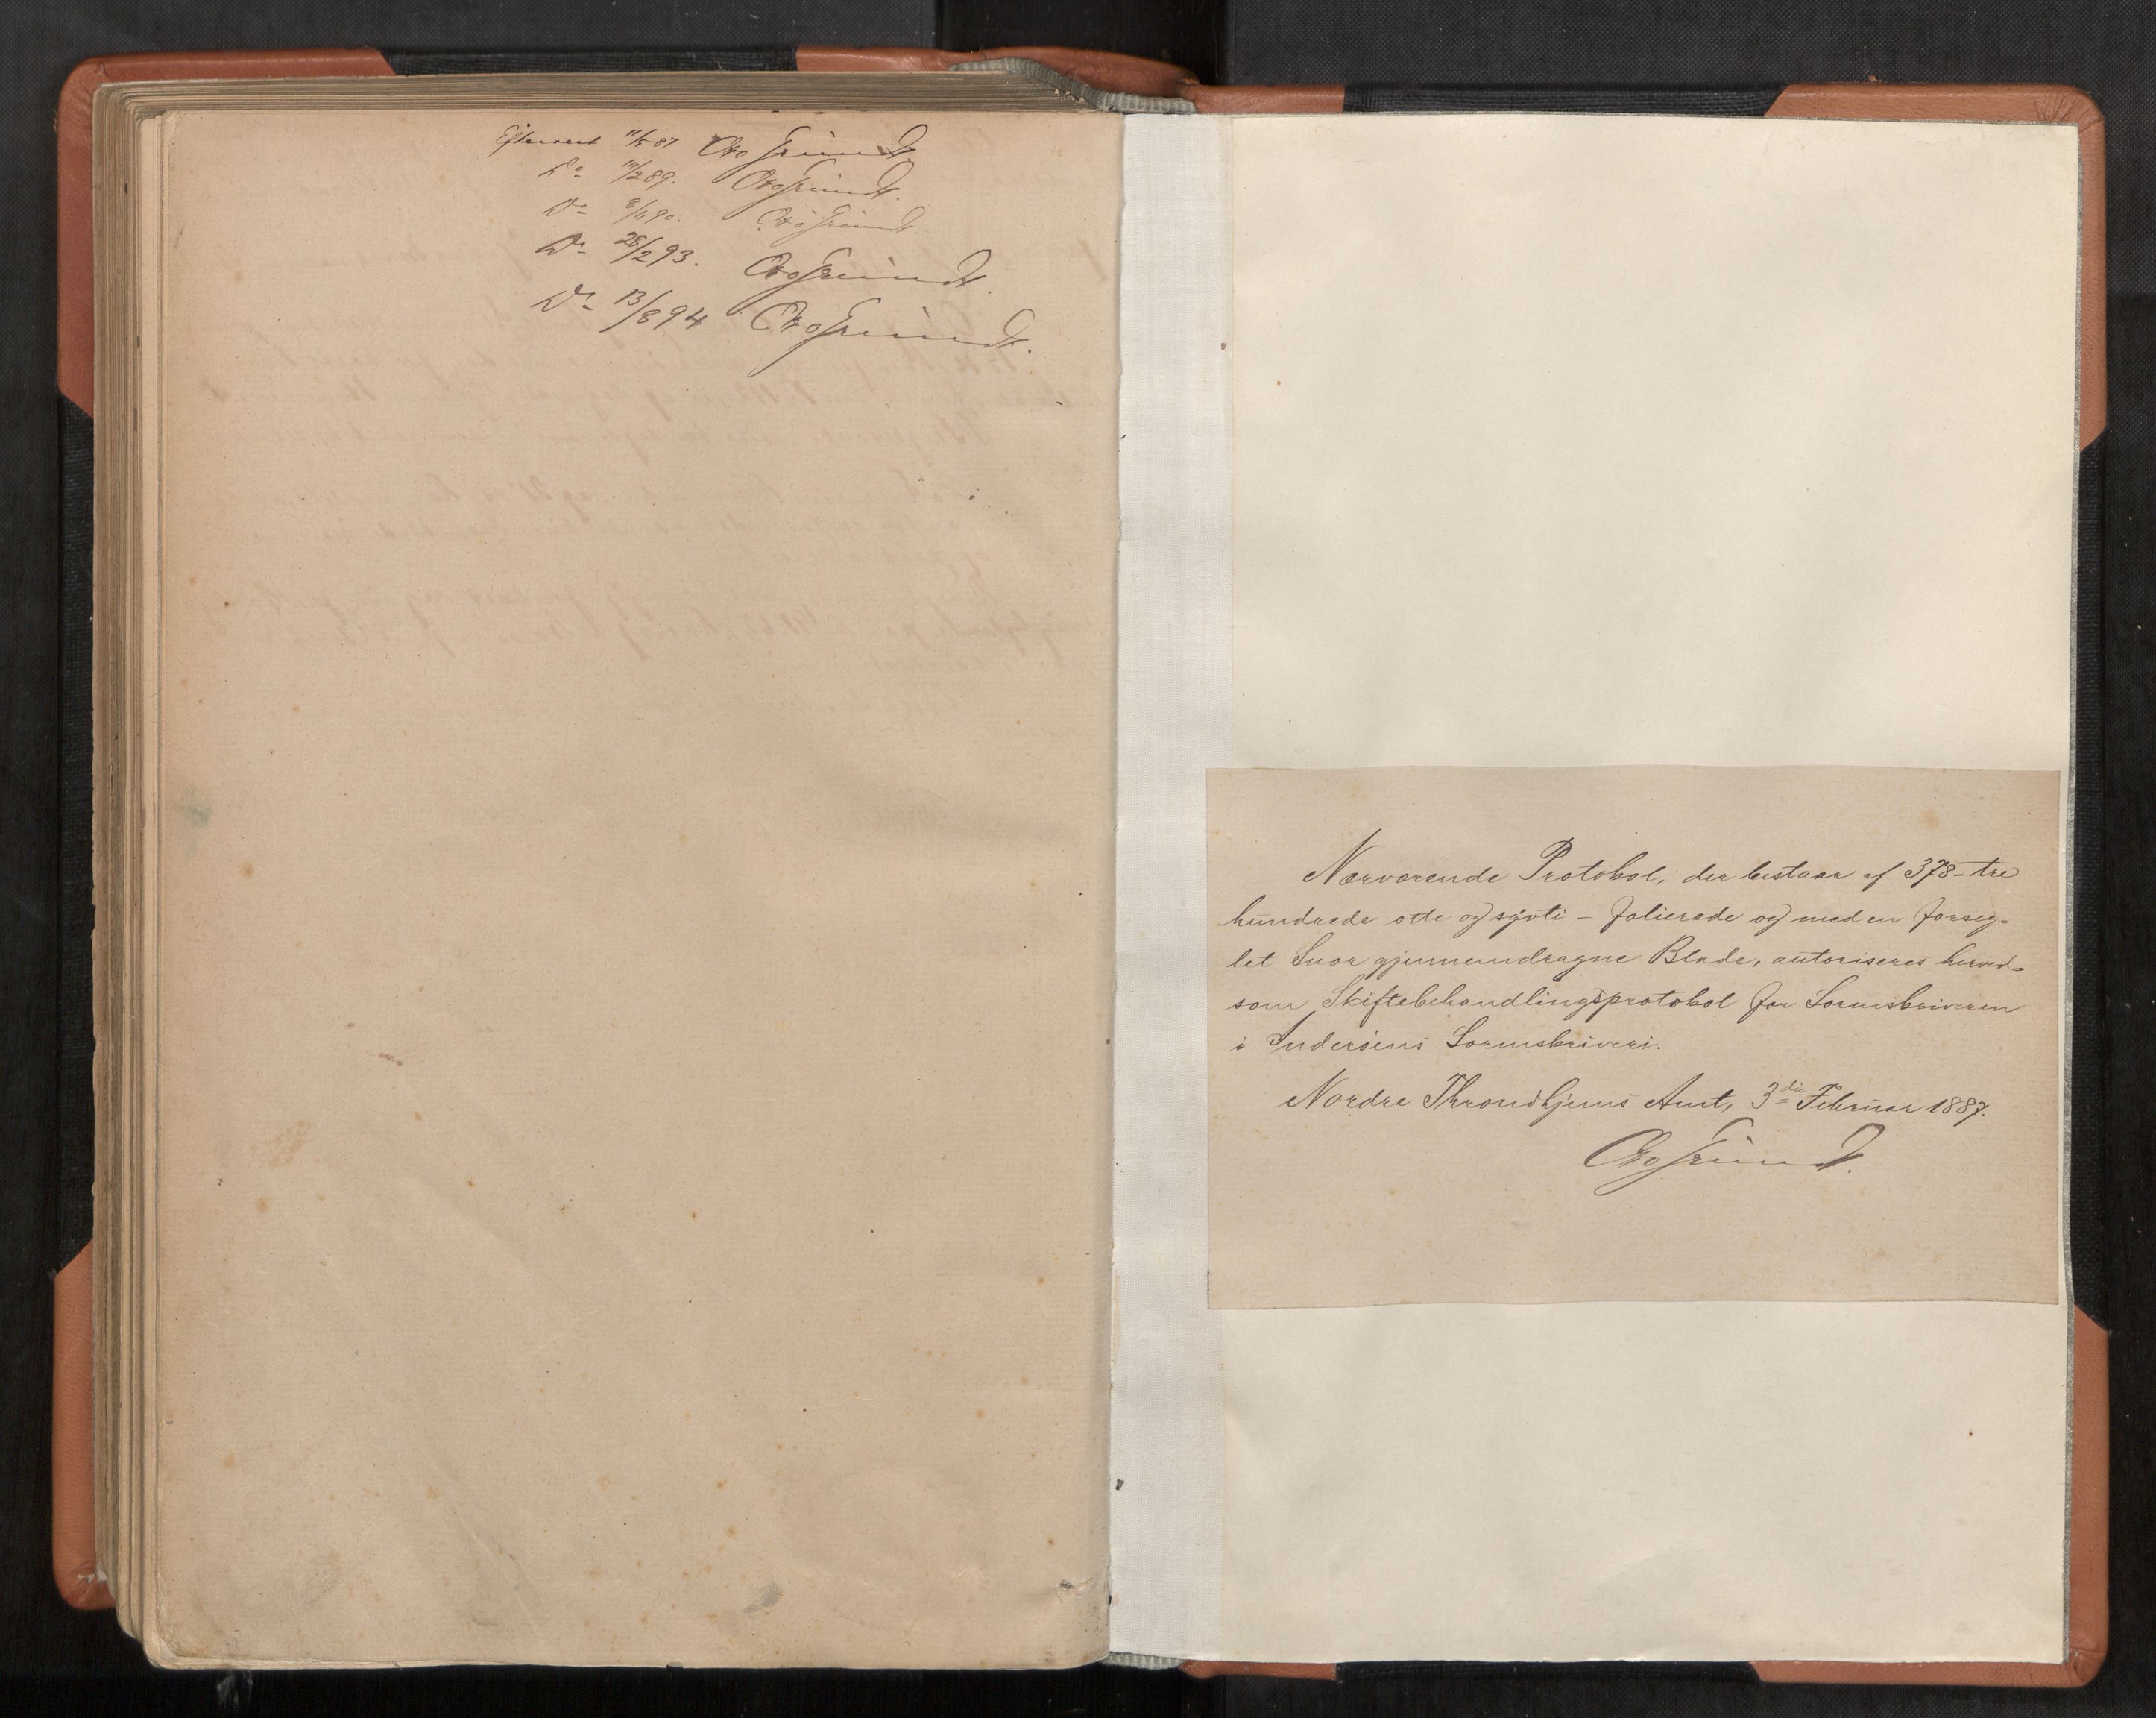 Efterseet 11/5 87 Chr Grundt.
Do 14/2 89. Chr Grundt.
Do 8/11 90. Chr Grundt.
Do 28/2 93. Chr Grundt.
Do 13/8 94 Chr Grundt.
Nærværende Protokol, der bestaar af 378 - tre
hundrede otte og sÿvti - folierede og med en forseg-
let Snor gjennemdragne Blade, autoriseres herved
som Skiftebehandlingsprotokol for Sorenskriveren
i Inderøens Sorenskriveri.
Nordre Throndhjems Amt, 3die Februar 1887.
Chr Grundt.